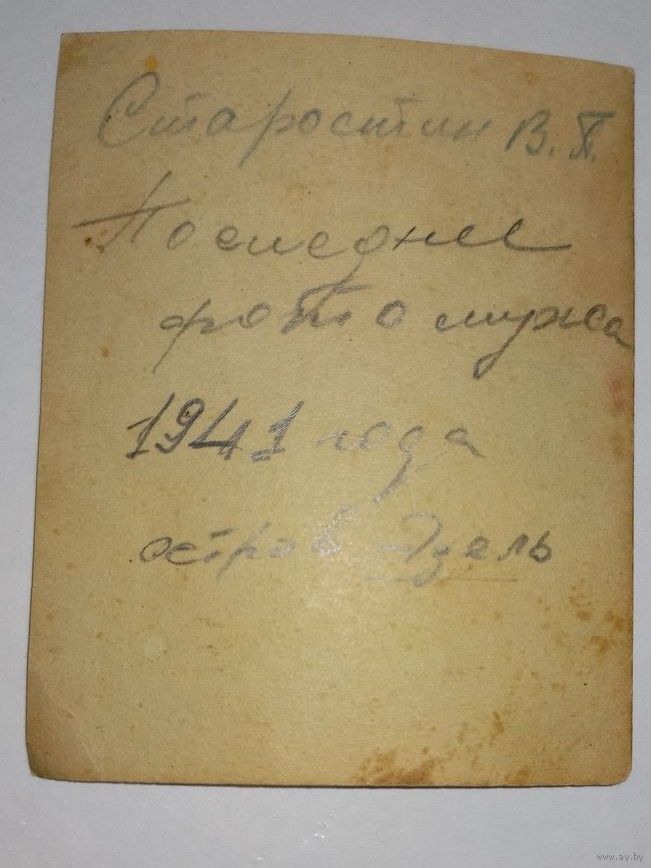 Старостин В. Х.
Последнее
фото мужа
1941 года
остров Эзель
www.ay.by